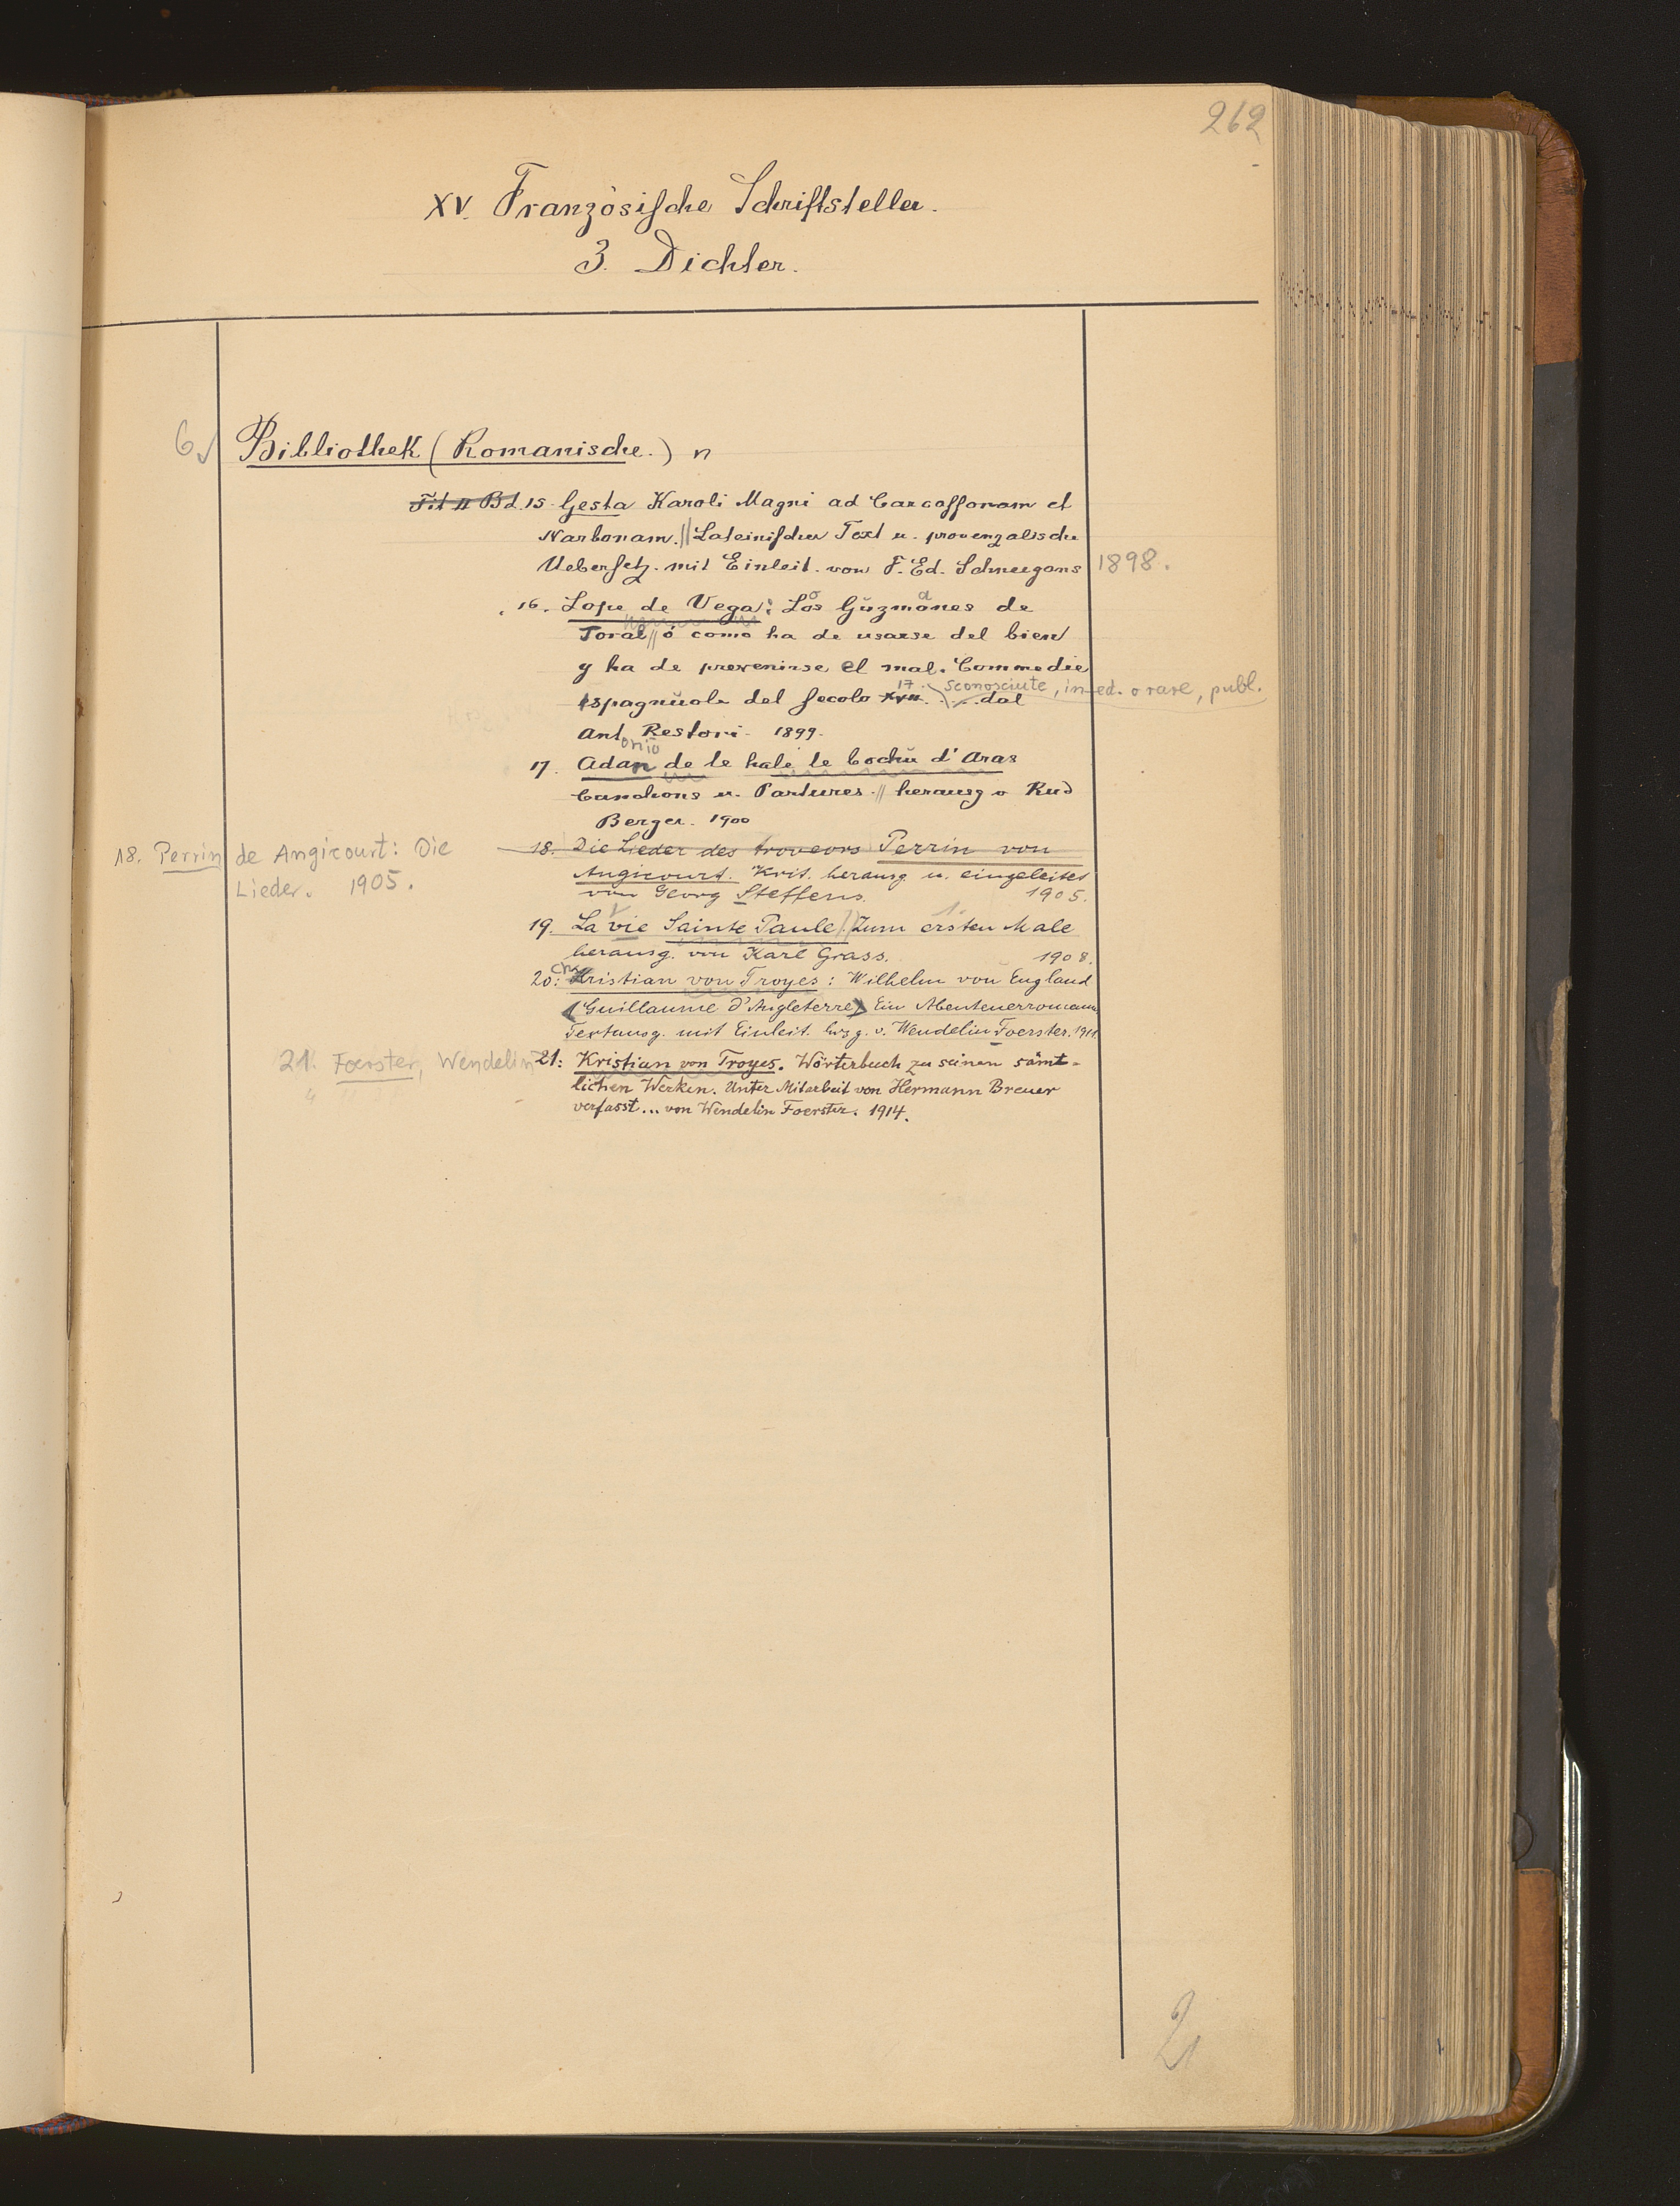 262
XV. Französische Schriftsteller.
3. Dichter.
6
Bibliothek (Romanische.) n
Bd. 15. Gesta Karoli Magni ad Carcassonam et
Narbonam. // Lateinischer Text u. provenzalische
Uebersetz. mit Einleit. von F. Ed. Schneegans 1898.
16. Lope de Vega: Los Guzmanes de
Toral // ó como ha de usarse del bien
y ha de prevenirse el mal. Commedie
spagnuole del secolo 17. sconosciute, ined. o rare, publ.
dal
Antonio Restori. 1899.
17. Adan de le hale le bochu d'Aras
Canchons u. Partures. // herausg v Rud
Berger. 1900
18. Perrin de Angicourt: Die
Lieder. 1905.
18. Die Lieder des troveors Perrin von
Angicourt. Krit. herausg. u. eingeleitet
von Georg Steffens. 1905.
19. La vie Sainte Paule // Zum ersten Male
herausg. von Karl Grass. 1908.
20: Christian von Troyes: Wilhelm von England
(Guillaume d'Angleterre) Ein Abenteuerroman
Textausg. mit Einleit. hrzg. v. Wendelin Foerster. 1911.
21. Foerster, Wendelin
21: Kristian von Troyes. Wörterbuch zu seinen sämt-
lichen Werken. Unter Mitarbeit von Hermann Breuer
verfasst... von Wendelin Foerster. 1914.